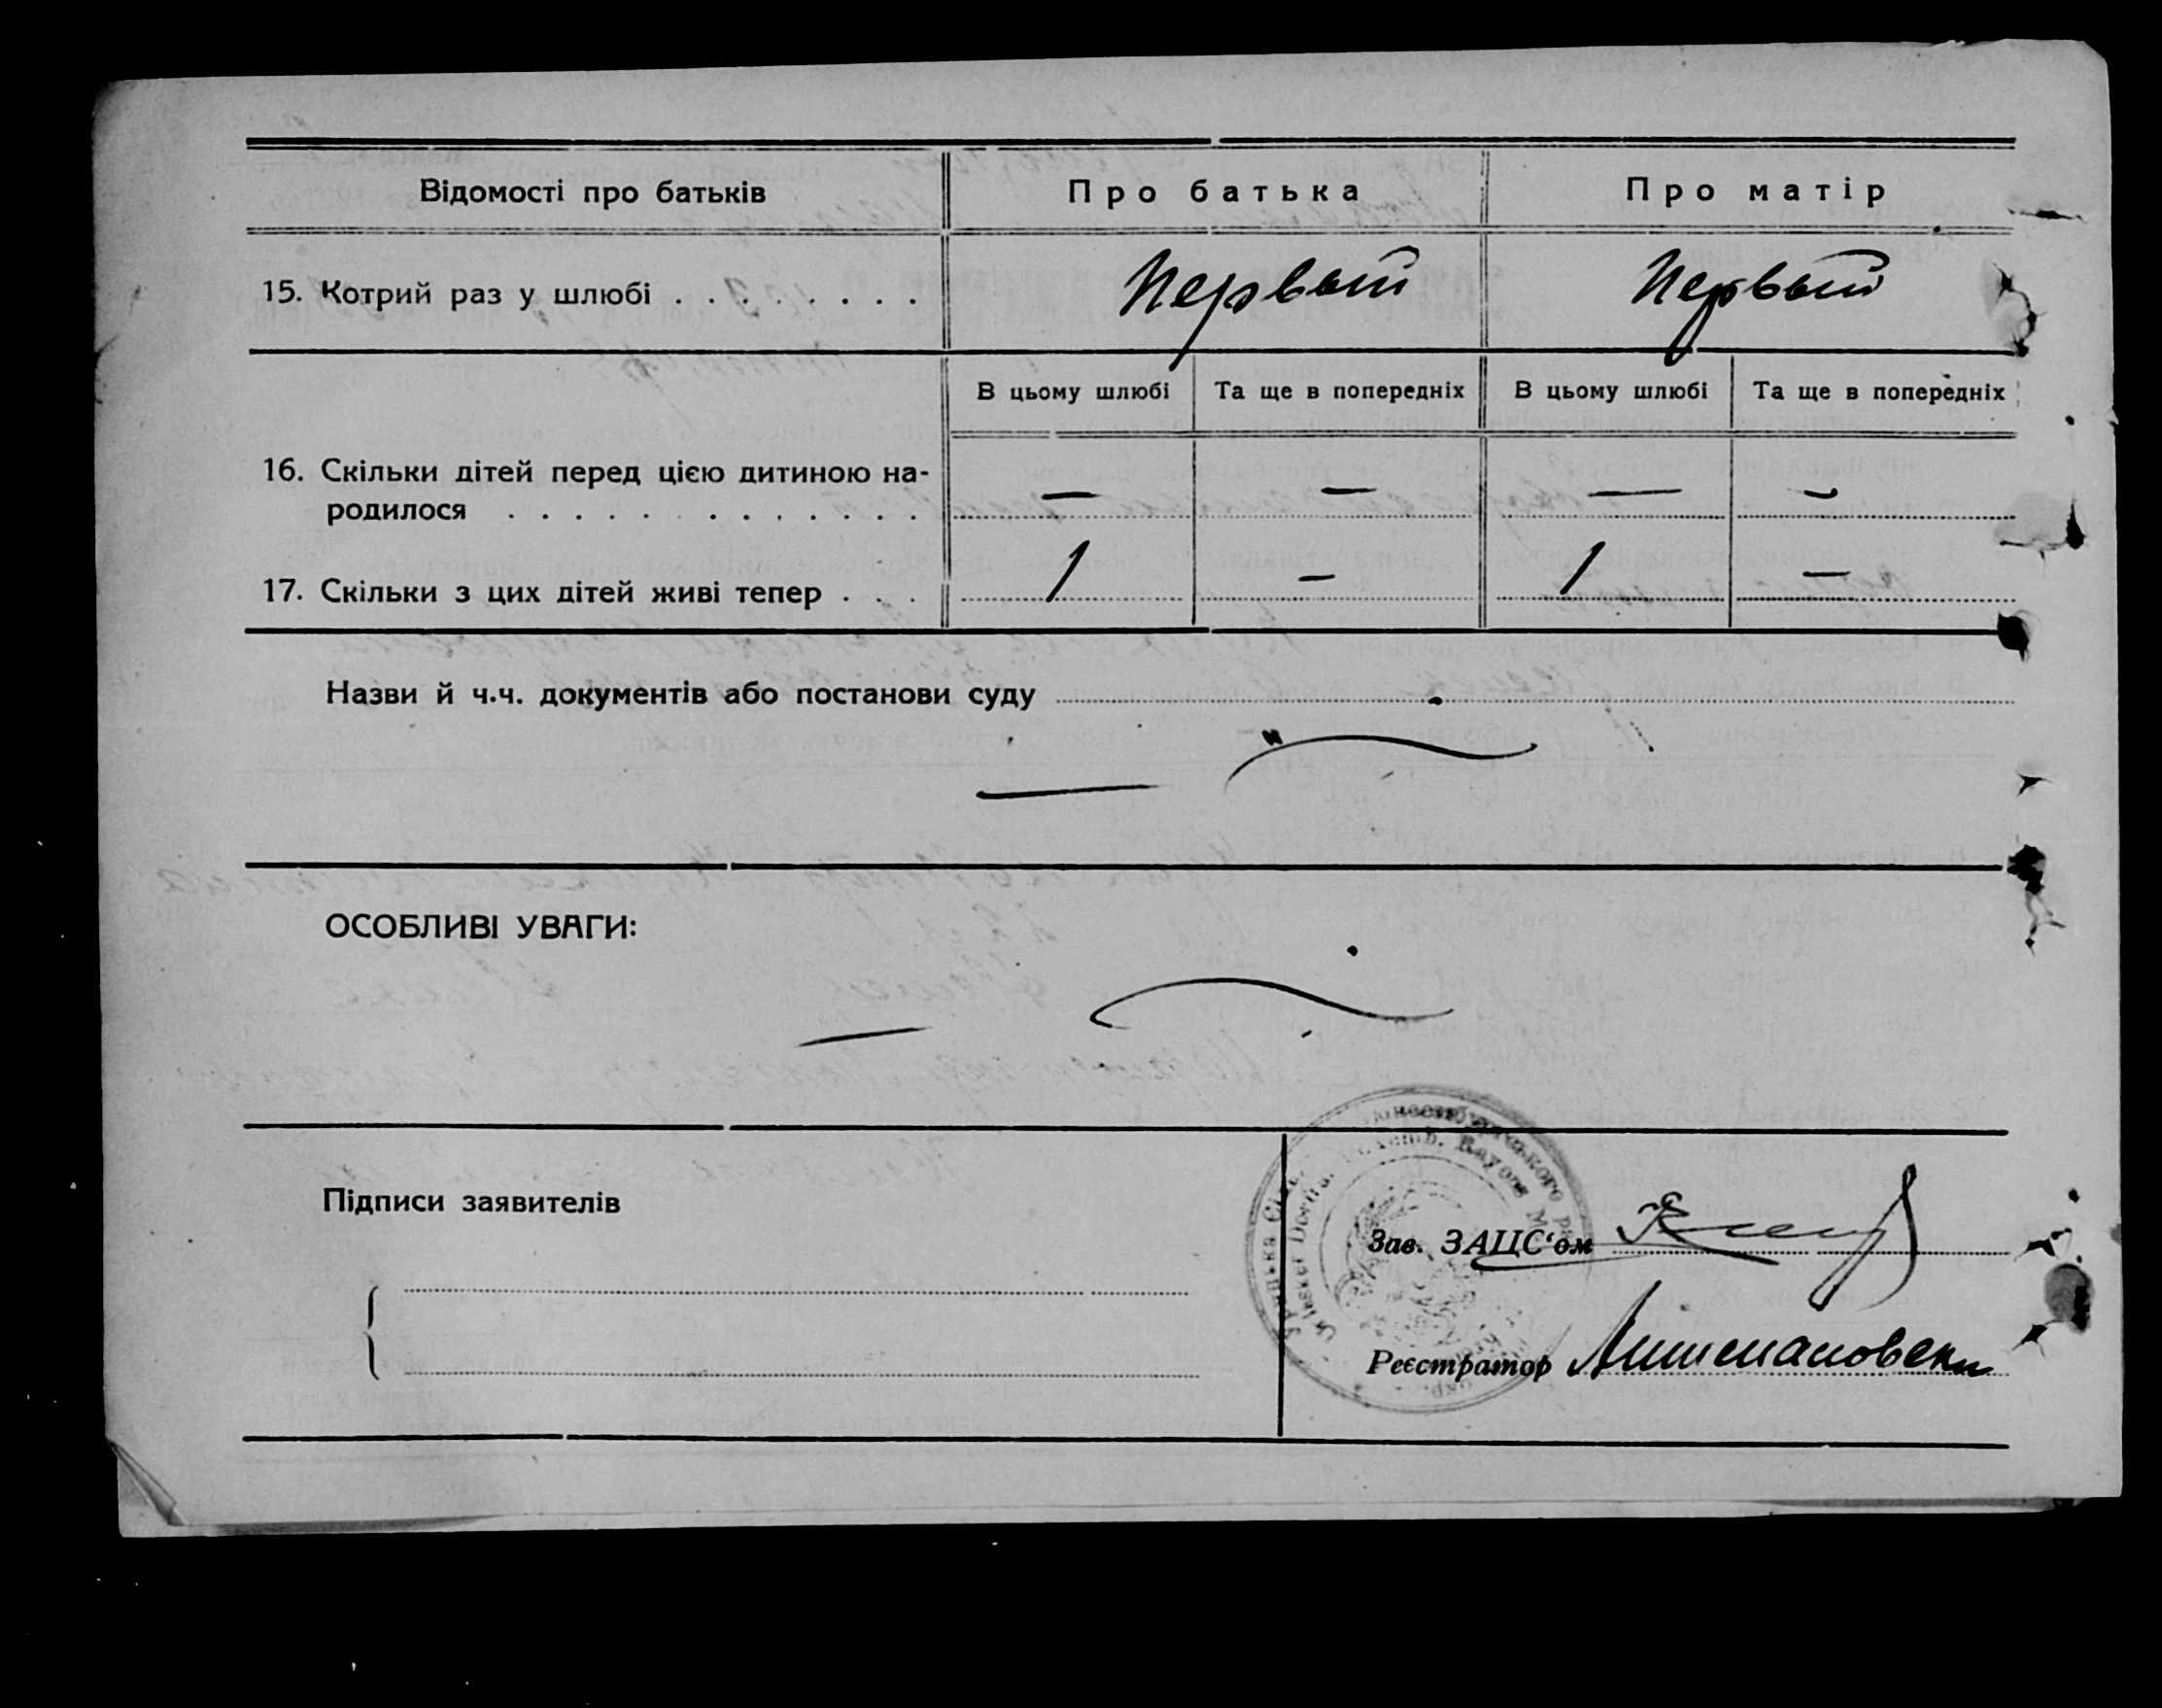 Відомості про батьків
Про батька
Про матір
15. Котрий раз у шлюбі . . . . . . . .
Первый
Первый
В цьому шлюбі
Та ще в попередніх
В цьому шлюбі
Та ще в попередніх
16. Скільки дітей перед цією дитиною на-
родилося . . . . . . . . . . . . .
— — — —
17. Скільки з цих дітей живі тепер . . .
1 — 1 —
Назви й ч.ч. документів або постанови суду
—
ОСОБЛИВІ УВАГИ:
—
Підписи заявителів
Зав. ЗАЦС‘ом
Реєстратор
Rayons